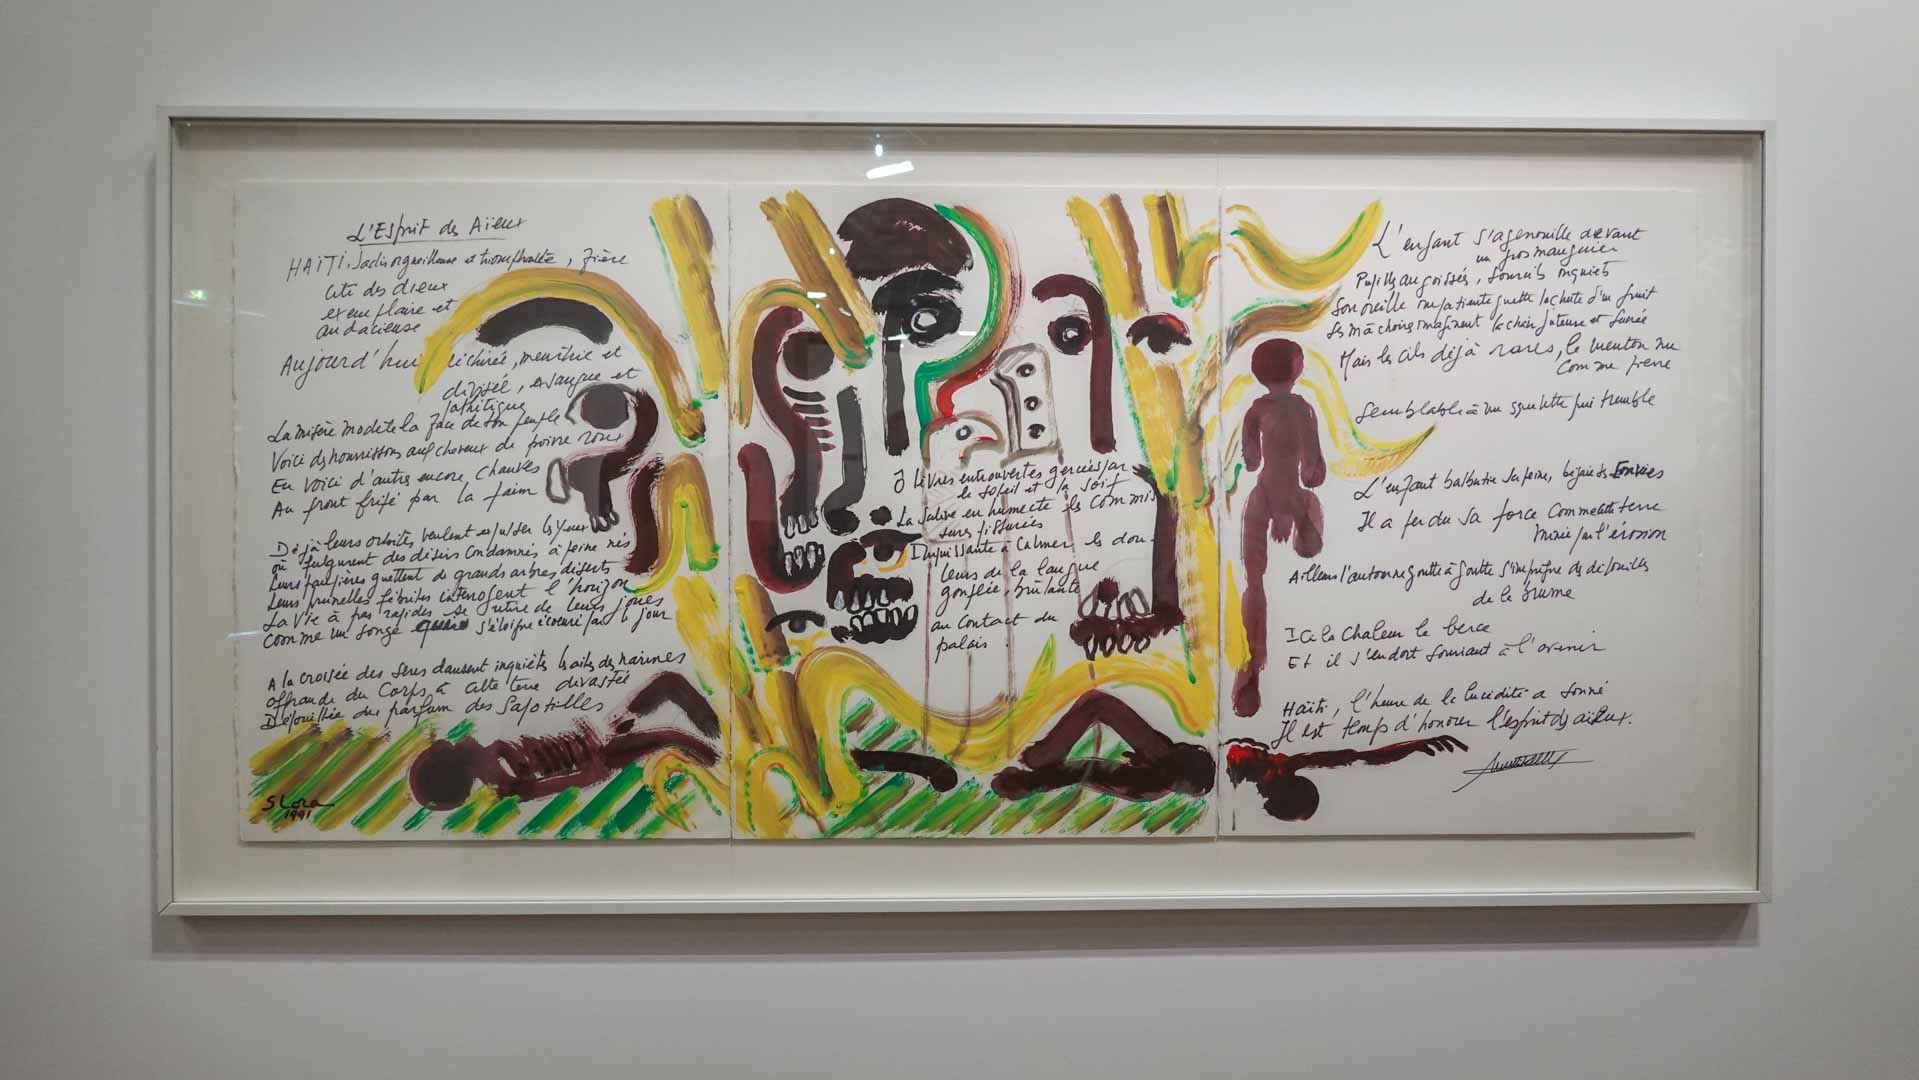 L'Esprit des Aïeux
HAÏTI, Jadis orgueilleuse et triomphante, fière
cité des dieux
exemplaire et
audacieuse
Aujourd'hui déchirée, meurtrie et
divisée, exsangue et
pathétique
La misère modèle la face de son peuple
Voici des nourrissons aux cheveux de poivre roux
En voici d'autres encore chauves
Au front fripé par la faim
Déjà leurs orbites veulent expulser les yeux
où fulgurent des désirs condamnés à peine nés
Leurs paupières guettent de grands arbres déserts
Leurs prunelles fébriles interrogent l'horizon
La vie à pas rapides se retire de leurs joues
Comme un songe s'éloigne écoeuré par le jour
A la croisée des sens dansent inquiets les ailes des narines
offrande du Corps à cette terre dévastée
Dépouillée du parfum des Sapotilles
SLora
1991
O lèvres entrouvertes gercées par
le soleil et la soif
La salive en humecte les commis
sures fissurées
Impuissante à calmer les dou-
leurs de la langue
gonflée, brûlante
au contact du
palais
L'enfant s'agenouille devant
un gros manguier
Pupilles angoissées, sourcils inquiets
Son oreille impatiente guette la chute d'un fruit
Ses mâchoires imaginent la chair juteuse et sucrée
Mais les cils déjà rares, le menton nu
Comme pierre
Semblable à un squelette qui tremble
L'enfant balbutie sa peine, bégaie ses Envies
Il a perdu sa force Comme cette terre
minée par l'érosion
Ailleurs l'automne goutte à goutte s'imprègne des dépouilles
de la brume
Ici la Chaleur le berce
Et il s'endort souriant à l'avenir
Haïti, l'heure de la lucidité a sonné
Il est temps d'honorer l'esprit des aïeux.